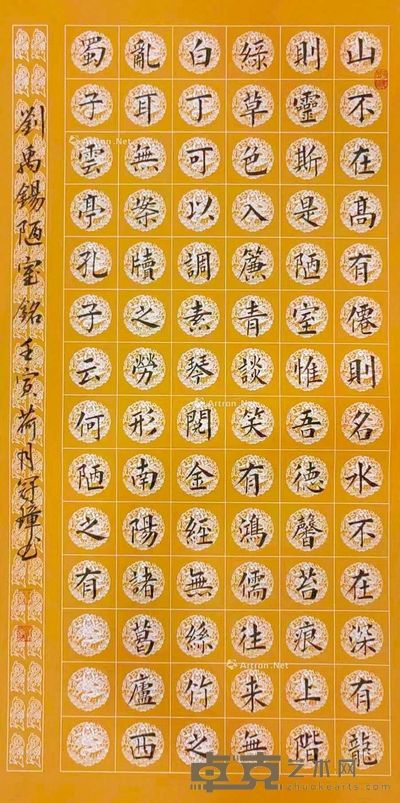 山不在高有僊則名水不在深有龍
則靈斯是陋室惟吾德馨苔痕上階
綠草色入簾青談笑有鴻儒往来無
白丁可以調素琴閱金經無絲竹之
亂耳無案牘之勞形南陽諸葛廬西
蜀子雲亭孔子云何陋之有
劉禹錫陋室銘壬寅荷月冠书
Artron.Net
Artron.Net
Artron.Net
Artron.Net
卓克艺术网
zhuokearts.com